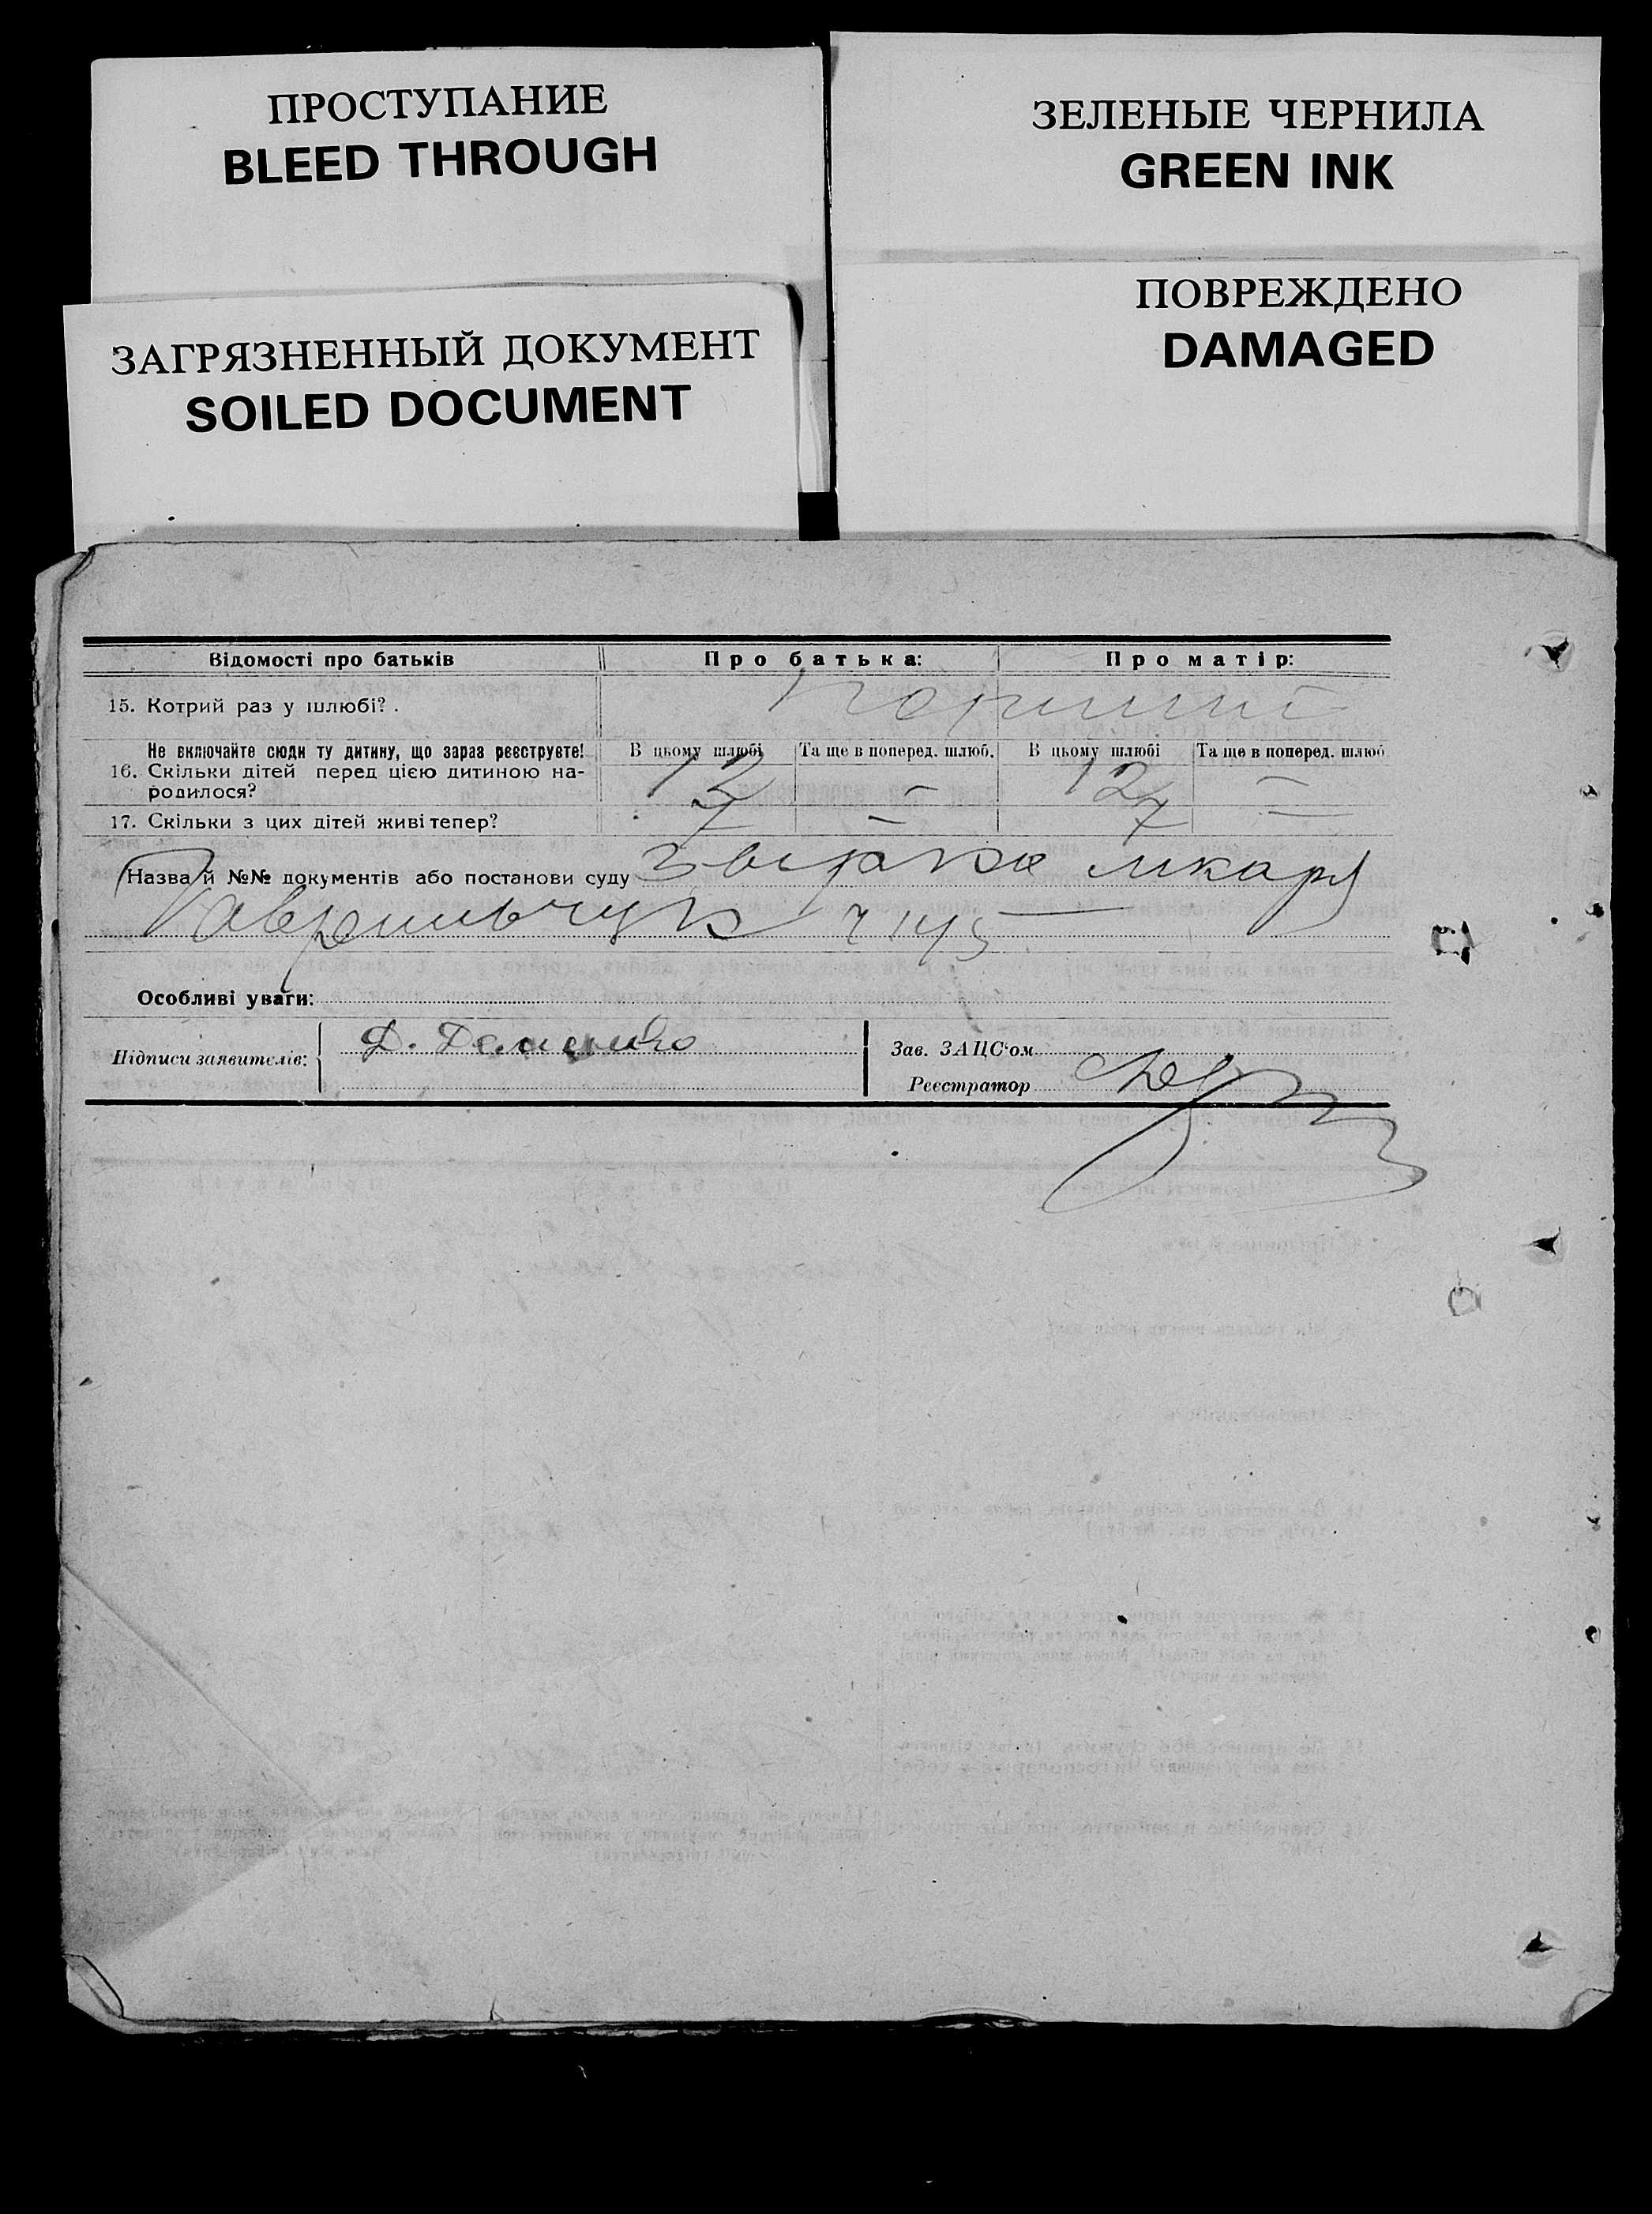 ПРОСТУПАНИЕ
BLEED THROUGH
ЗЕЛЕНЫЕ ЧЕРНИЛА
GREEN INK
ЗАГРЯЗНЕННЫЙ ДОКУМЕНТ
SOILED DOCUMENT
ПОВРЕЖДЕНО
DAMAGED
Відомості про батьків Про батька: Про матір:
15. Котрий раз у шлюбі?.
Не включайте сюди ту дитину, що зараз реєструєте! В цьому шлюбі Та ще в поперед. шлюб. В цьому шлюбі Та ще в поперед. шлюб
16. Скільки дітей перед цією дитиною на-
родилося? 12 — 12 —
17. Скільки з цих дітей живі тепер? 7 — 7 —
Назва й №№ документів або постанови суду
Гаврильчук
Особливі уваги:
Підписи заявителів: Д.
Зав. ЗАЦС'ом
Реєстратор